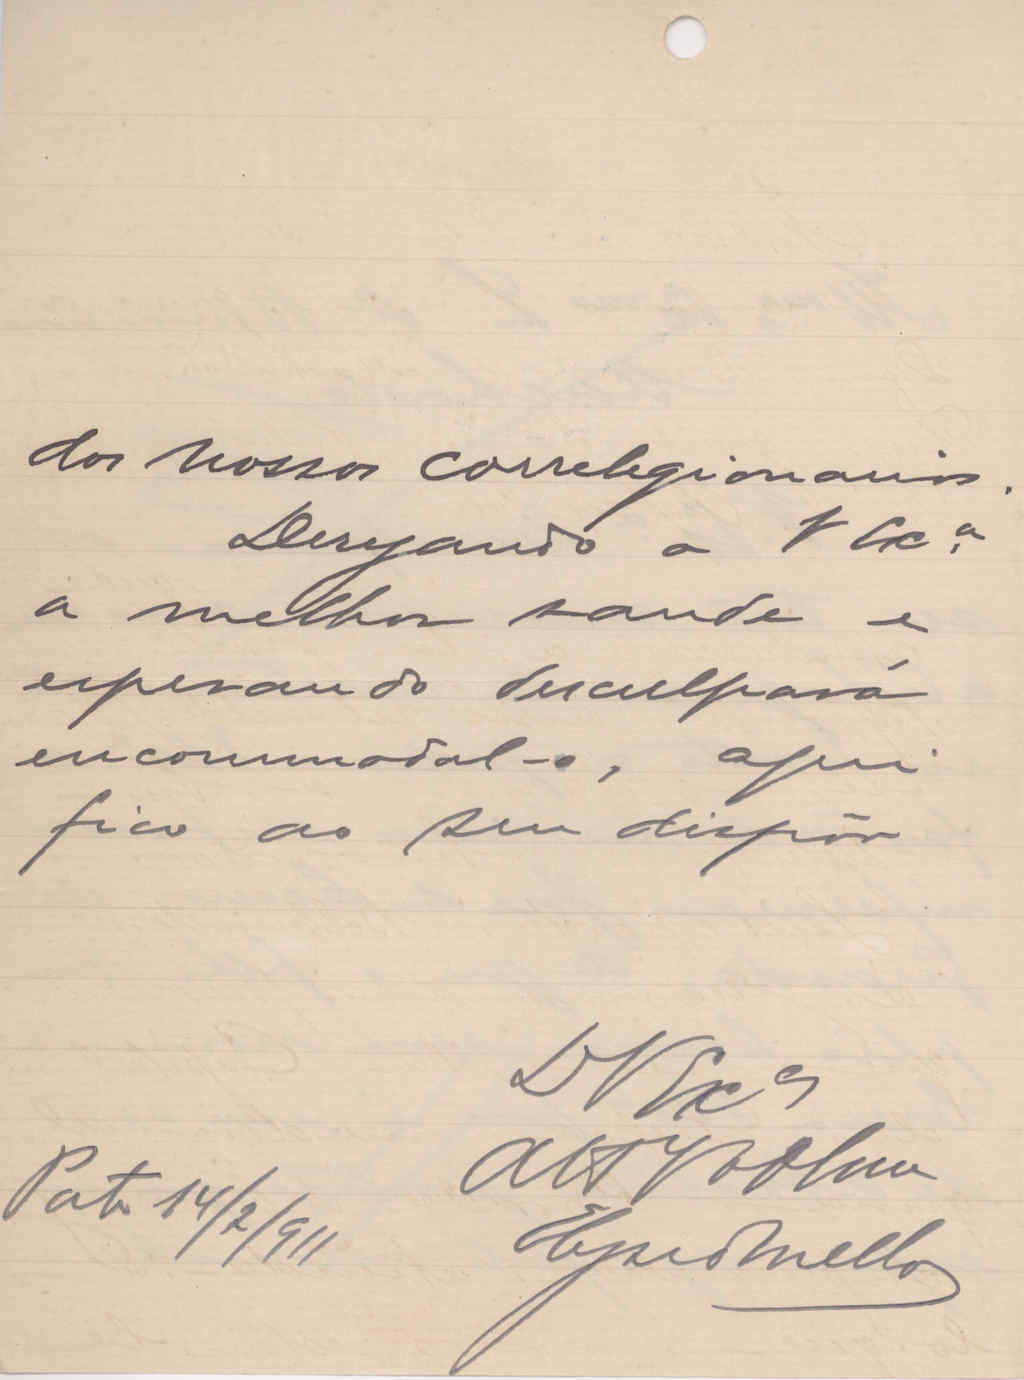 dos nossos correlegionarios.
Desejando a V Exª
a melhor saude e
esperando desculpará
encommodal-o, aqui
fico ao seu dispôr
D V Exª
Att Vor
Mello
Porto 14/2/911